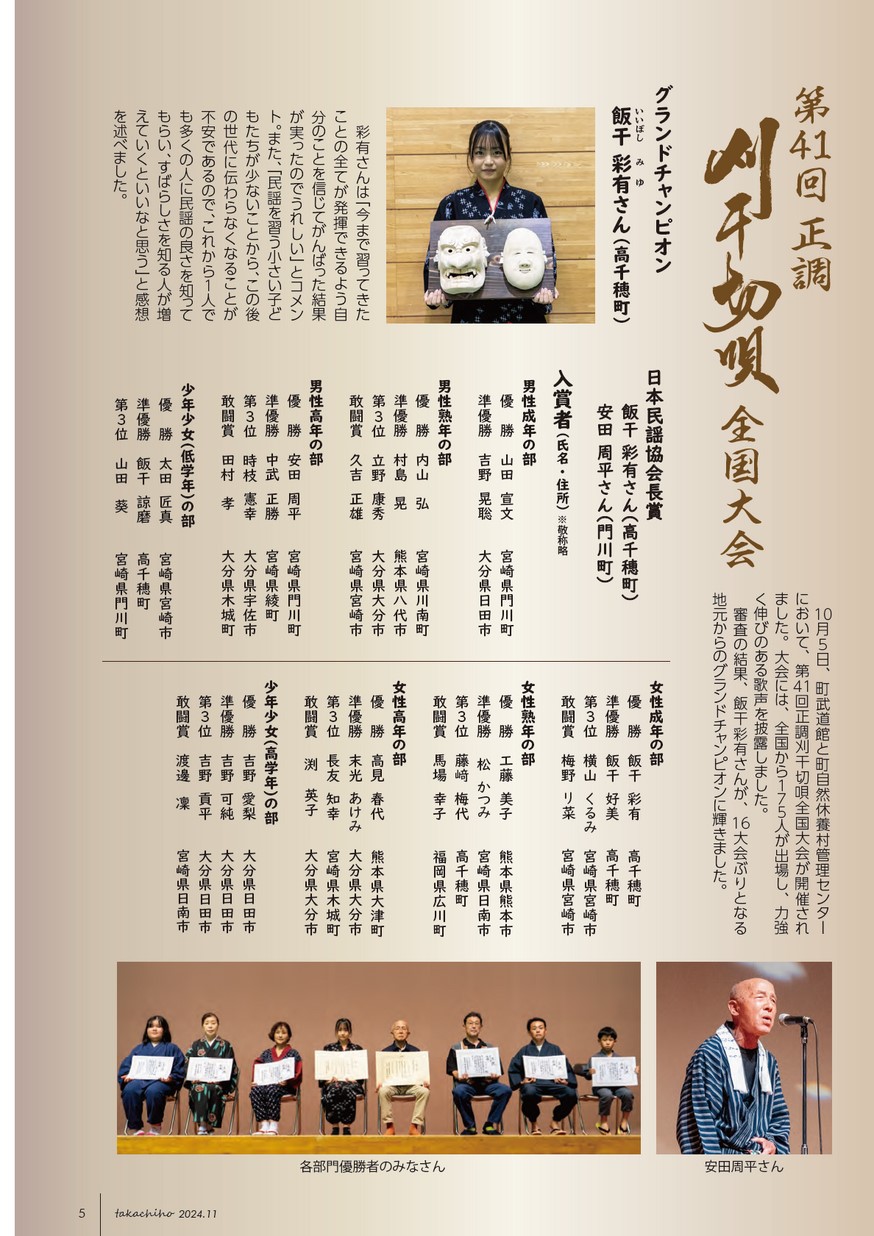 第41回 正調
刈干切唄 全国大会
10月5日、町武道館と町自然休養村管理センター
において、第41回正調刈干切唄全国大会が開催され
ました。大会には、全国から175人が出場し、力強
く伸びのある歌声を披露しました。
審査の結果、飯干彩有さんが、16大会ぶりとなる
地元からのグランドチャンピオンに輝きました。
グランドチャンピオン
飯干 彩有さん(高千穂町)
いいぼし み ゆ
彩有さんは「今まで習ってきた
ことの全てが発揮できるよう自
分のことを信じてがんばった結果
が実ったのでうれしい」とコメン
ト。また、「民謡を習う小さい子ど
もたちが少ないことから、この後
の世代に伝わらなくなることが
不安であるので、これから1人で
も多くの人に民謡の良さを知って
もらい、すばらしさを知る人が増
えていくといいなと思う」と感想
を述べました。
日本民謡協会長賞
飯干 彩有さん(高千穂町)
安田 周平さん(門川町)
入賞者(氏名・住所)※敬称略
男性成年の部
優 勝 山田 宣文 宮崎県門川町
準優勝 吉野 晃聡 大分県日田市
男性熟年の部
優 勝 内山 弘 宮崎県川南町
準優勝 村島 晃 熊本県八代市
第3位 立野 康秀 大分県大分市
敢闘賞 久吉 正雄 宮崎県宮崎市
男性高年の部
優 勝 安田 周平 宮崎県門川町
準優勝 中武 正勝 宮崎県綾町
第3位 時枝 憲幸 大分県宇佐市
敢闘賞 田村 孝 大分県木城町
少年少女(低学年)の部
優 勝 太田 匠真 宮崎県宮崎市
準優勝 飯干 諒磨 高千穂町
第3位 山田 葵 宮崎県門川町
女性成年の部
優 勝 飯干 彩有 高千穂町
準優勝 飯干 好美 高千穂町
第3位 横山 くるみ 宮崎県宮崎市
敢闘賞 梅野 リ菜 宮崎県宮崎市
女性熟年の部
優 勝 工藤 美子 熊本県熊本市
準優勝 松 かつみ 宮崎県日南市
第3位 藤﨑 梅代 高千穂町
敢闘賞 馬場 幸子 福岡県広川町
女性高年の部
優 勝 高見 春代 熊本県大津町
準優勝 末光 あけみ 大分県大分市
第3位 長友 知幸 宮崎県木城町
敢闘賞 渕 英子 大分県大分市
少年少女(高学年)の部
優 勝 吉野 愛梨 大分県日田市
準優勝 吉野 可純 大分県日田市
第3位 吉野 貢平 大分県日田市
敢闘賞 渡邊 凜 宮崎県日南市
各部門優勝者のみなさん
安田周平さん
5
takachiho 2024.11